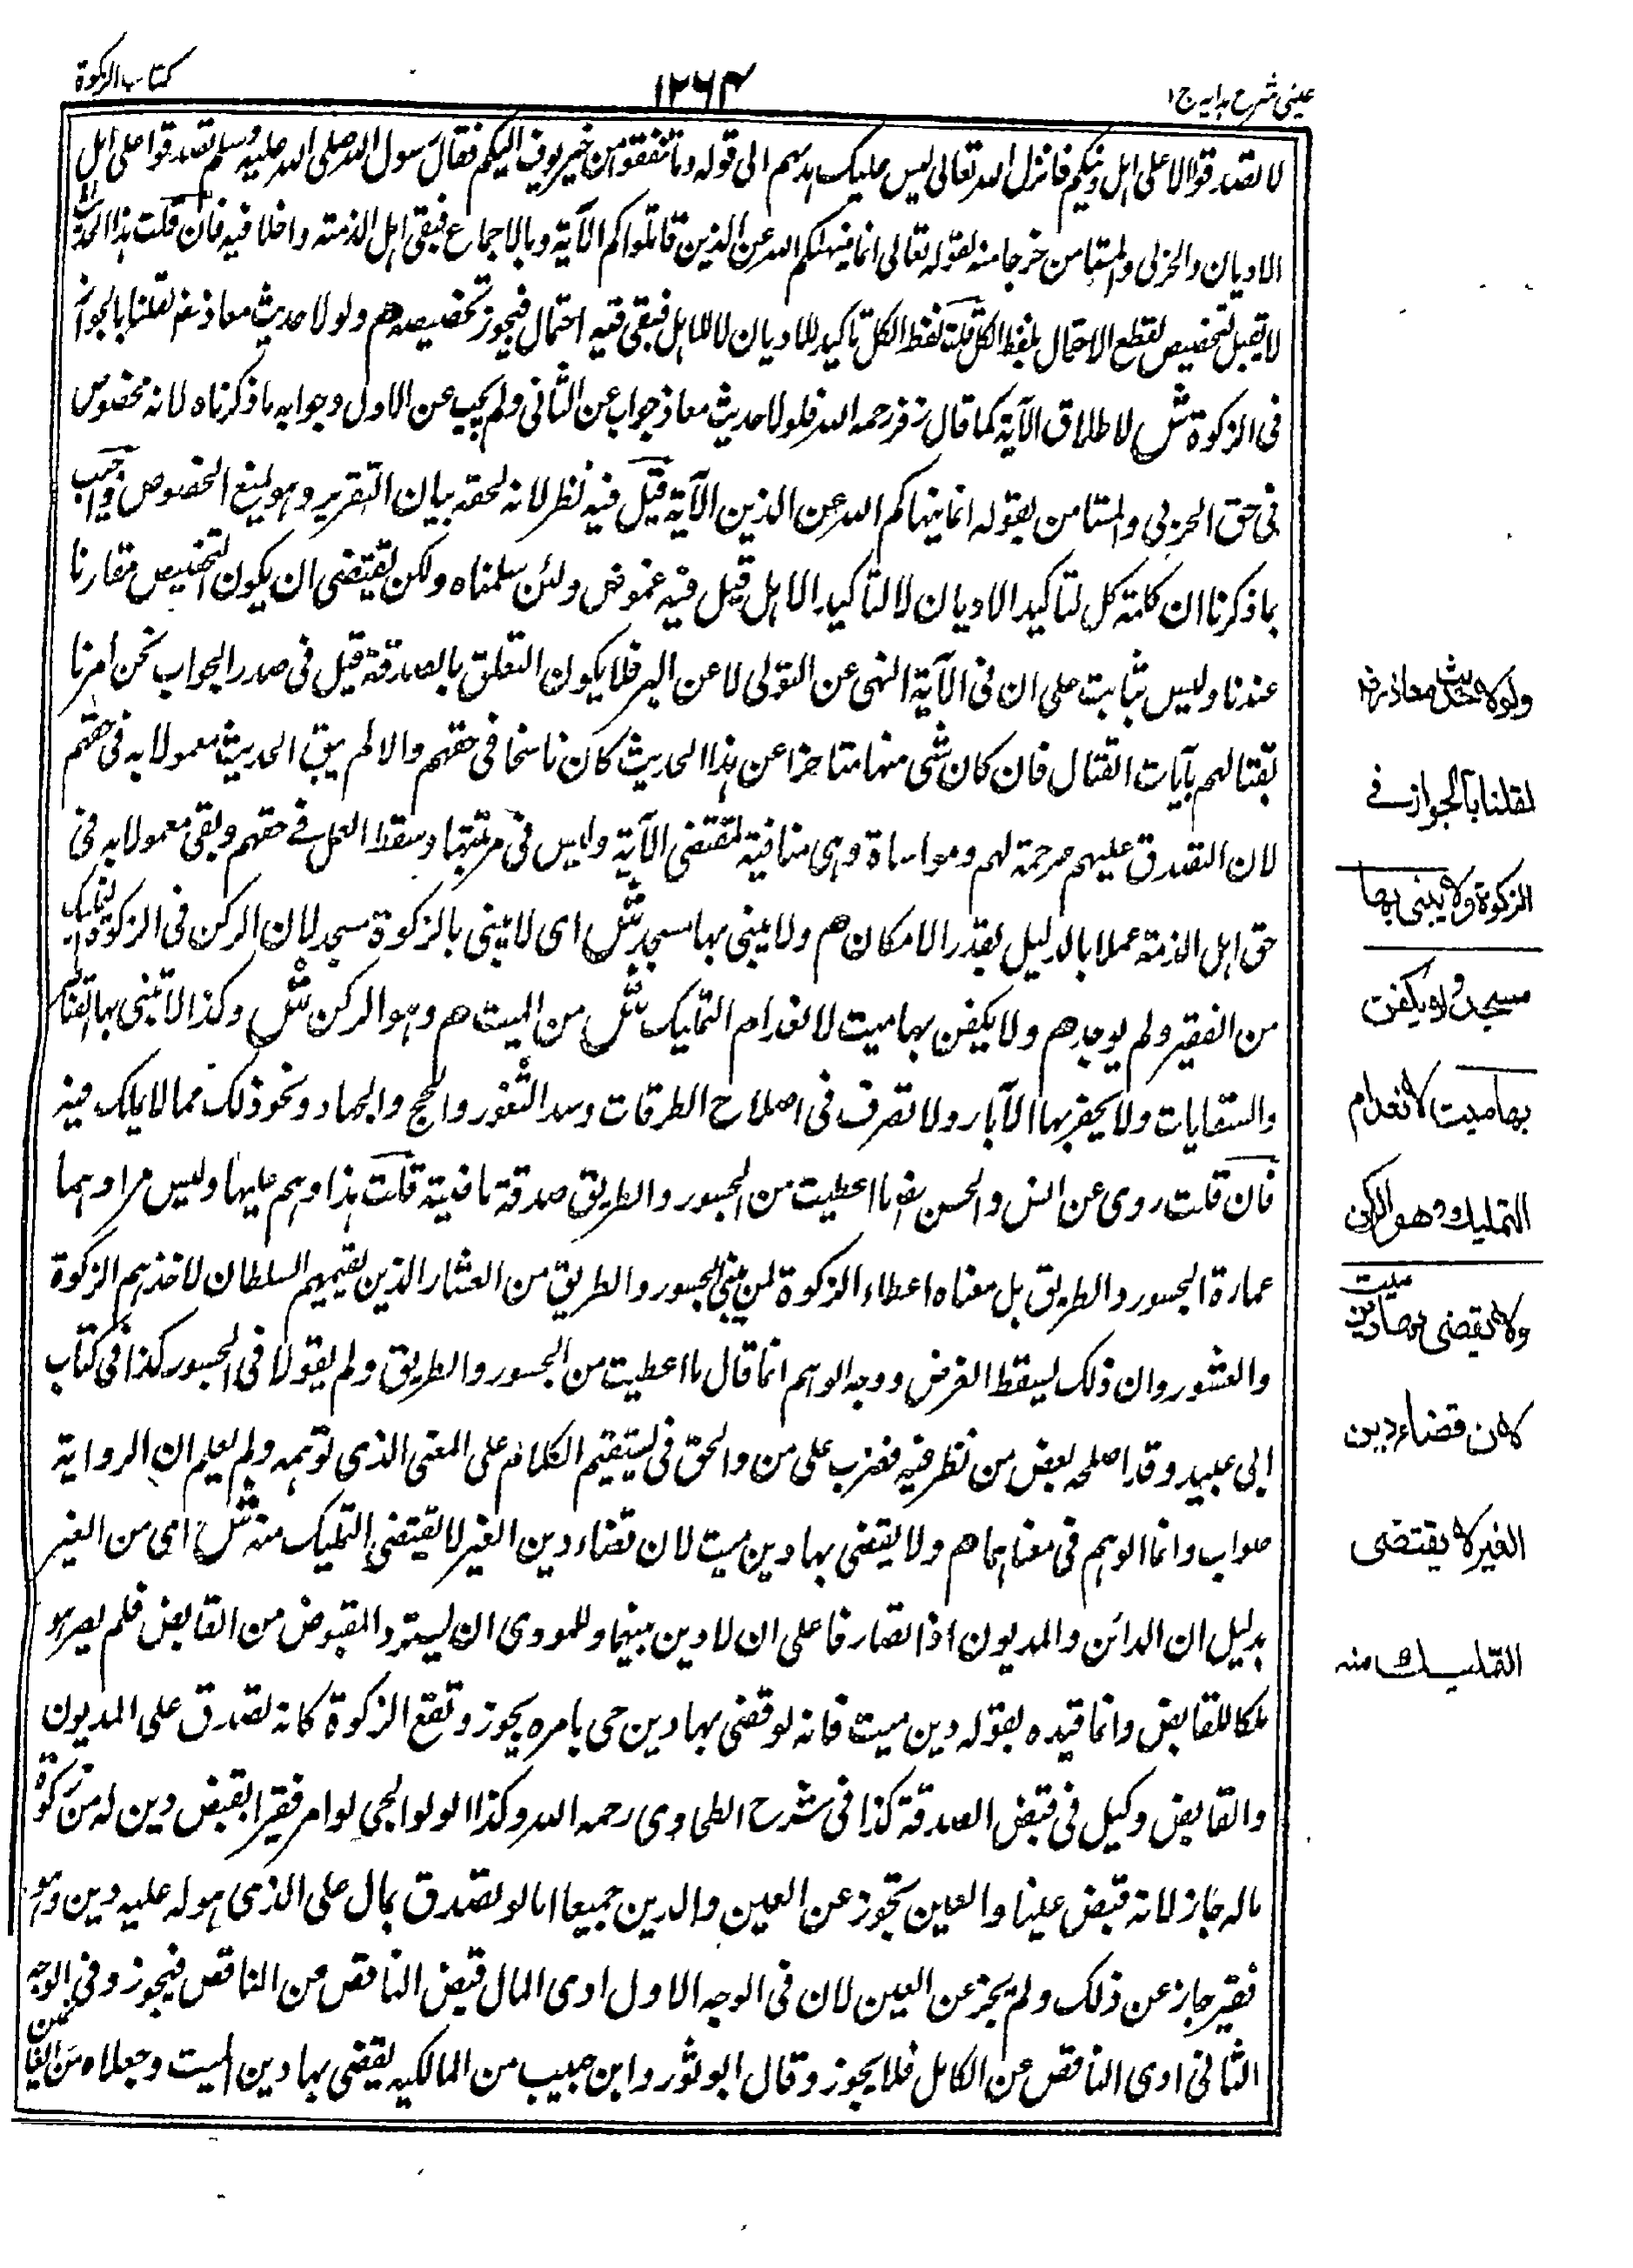 عینی شرح ہدایہ ج ۱
۱۲۶۴
کتاب الزکوة
لا تصدقوا الا على اهل دينكم فانزل الله تعالى ليس عليك هدىهم الى قوله وما تنفقوا من خير يوف اليكم فقال رسول الله صلى الله عليه وسلم تصدقوا على اهل
الاديان والحربى والمستامن خرجا منه لقوله تعالى انما ينهاكم الله عن الذين قاتلوكم الآية وبالاجماع فبقى اهل الذمته داخلا فيه فان قلت هذا الحديث
لا يقبل التخصيص لقطع الاحتمال بلفظ الكل قلت لفظ الكل تاكيد للاديان لا للاهل فبقى فيه احتمال فيجوز تخصيصه هم ولولا حديث معاذ رضه لقلنا بالجواز
فى الزكوة ش لاطلاق الآية كما قال زفر رحمه الله فلولا حديث معاذ جواب عن الثانى ولم يجب عن الاول وجوابه ما ذكرناه لانه مخصوص
فى حق الحربى والمستامن بقوله انما ينهاكم الله عن الذين الآية قيل فيه نظر لانه لحقه بيان التقرير وهو يمنع الخصوص واجيب
بما ذكرنا ان كلمته كل لتاكيد الاديان لا لتاكيد الاهل قيل فيه غموض ولئن سلمناه ولكن يقتضى ان يكون التخصيص مقارنا
عندنا وليس بثابت على ان فى الآية النهى عن التولى لا عن البر فلا يكون التعلق بالصدقة قيل فى صدر الجواب نحن امرنا
بقتالهم بآيات القتال فان كان شى منها متاخرا عن هذا الحديث كان ناسخا فى حقهم والا لم يبق الحديث معمولا به فى حقهم
لان التصدق عليهم مرحمة لهم ومواساة وهى منافية لمقتضى الآية وليس فى مرتبتها وسقط العمل فى حقهم وبقى معمولا به فى
حق اهل الذمته عملا بالدليل بقدر الامكان هم ولا يبنى بها مسجد ش اى لا يبنى بالزكوة مسجد لان الركن فى الزكوة التمليك
من الفقير ولم يوجد هم ولا يكفن بها ميت لانعدام التمليك ش من الميت هم وهو الركن ش وكذا لا تبنى بها القناطر
والسقايات ولا يحفر بها الآبار ولا تصرف فى اصلاح الطرقات وسد الثغور والحج والجهاد ونحو ذلك مما لا يملك فيه
فان قلت روى عن انس والحسن رضه ما اعطيت من الجسور والطريق صدقة ماضية قلت هذا وهم عليها وليس مرادهما
عمارة الجسور والطريق بل معناه اعطاء الزكوة لمن يبنى الجسور والطريق من العشار الذين يقيمهم السلطان لاخذهم الزكوة
والعشور وان ذلك ليسقط الفرض ووجه الوهم انما قال ما اعطيت من الجسور والطريق ولم يقولا فى الجسور كذا فى كتاب
ابى عبيد وقد اصلحه بعض من نظر فيه فضرب على من والحق فى ليستقيم الكلام على المعنى الذى توهمه ولم يعلم ان الرواية
صواب وانما الوهم فى معناهما هم ولا يقضى بها دين ميت لان قضاء دين الغير لا يقتضى التمليك منه ش اى من الغير
بدليل ان الدائن والمديون اذا تصادقا على ان لا دين بينهما وللمودى ان يسترد المقبوض من القابض فلم يصر هو
ملكا للقابض وانما قيده بقوله دين ميت فانه لو قضى بها دين حى بامره يجوز وتقع الزكوة كانه تصدق على المديون
والقابض وكيل فى قبض الصدقة كذا فى شرح الطحاوى رحمه الله وكذا الولوالجى لو امر فقيرا بقبض دين له من زكوة
ماله جاز لانه قبض عينا والعين تجوز عن العين والدين جميعا اما لو تصدق بمال على الذى هو له عليه دين وهو
فقير جاز عن ذلك ولم يجز عن العين لان فى الوجه الاول ادى المال قبض الناقص من الناقص فيجوز وفى الوجه
الثانى ادى الناقص عن الكامل فلا يجوز وقال ابو ثور وابن حبيب من المالكيه يقضى بها دين الميت وجعلاه من الغا
رمين
ولولا حديث معاذ رضه
لقلنا بالجواز فى
الزكوة ولا يبنى بها
مسجد ولا يكفن
بها ميت لانعدام
التمليك وهو الركن
ولا يقضى بها دين ميت
لان قضاء دين
الغير لا يقتضى
التمليك منه